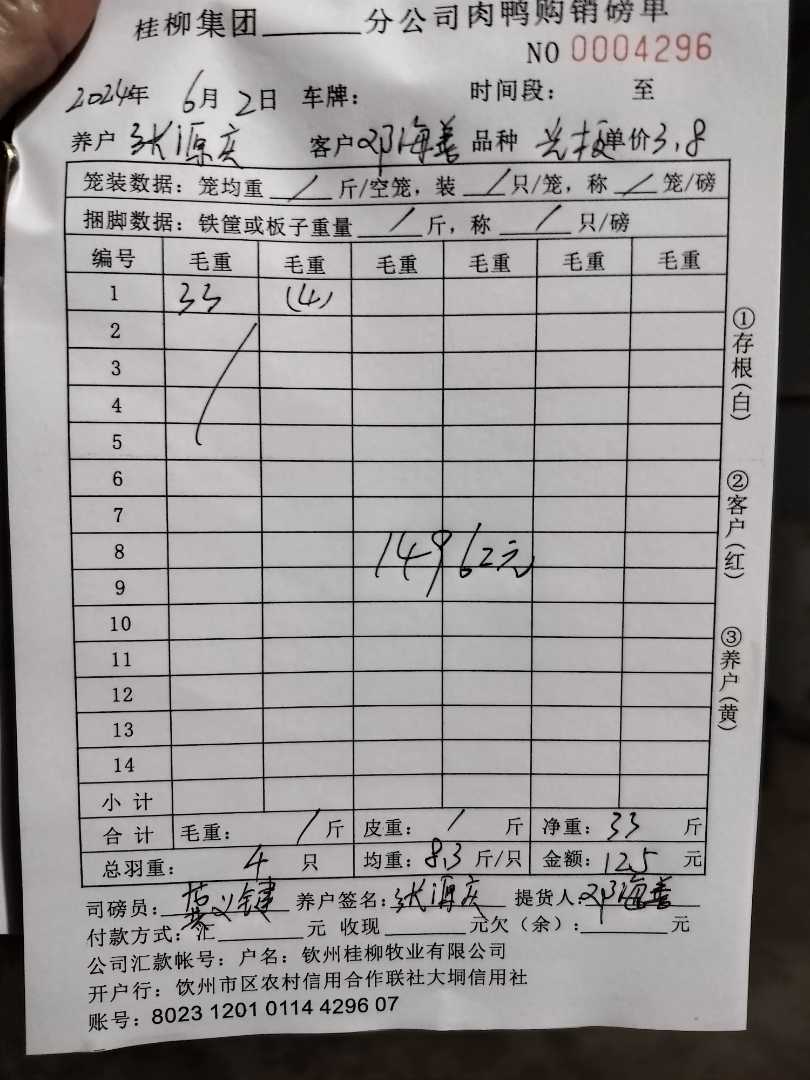 桂柳集团______分公司肉鸭购销磅单
NO 0004296
2024年 6月 2日 车牌: 时间段: 至
养户 张源庆 客户 邓海善 品种 光板 单价 3.8
笼装数据: 笼均重 / 斤/空笼, 装 / 只/笼, 称 / 笼/磅
捆脚数据: 铁筐或板子重量 / 斤, 称 / 只/磅
编号 毛重 毛重 毛重 毛重 毛重 毛重
1 33 (4)
2
3
4
5
6
7
8 14962元
9
10
11
12
13
14
小计
合计 毛重: / 斤 皮重: / 斤 净重: 33 斤
总羽重: 4 只 均重: 8.3 斤/只 金额: 125 元
司磅员: 义键 养户签名: 张源庆 提货人: 邓海善
付款方式: 汇______元 收现______元欠(余):______元
公司汇款帐号: 户名: 钦州桂柳牧业有限公司
开户行: 饮州市区农村信用合作联社大垌信用社
账号: 8023 1201 0114 4296 07
①存根(白)
②客户(红)
③养户(黄)